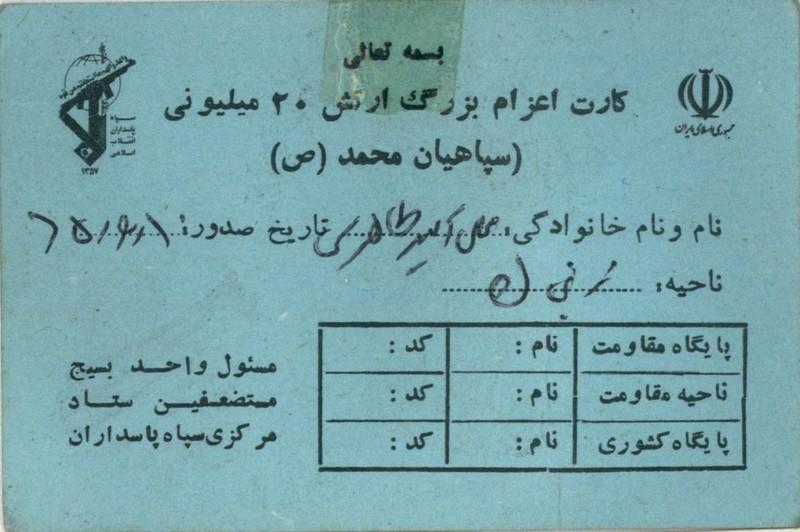 بسمه تعالی
کارت اعزام بزرگ ارتش ۲۰ میلیونی
(سپاهیان محمد (ص)
جمهوری اسلامی ایران
سپاه
پاسداران
انقلاب
اسلامی
۱۳۵۷
نام ونام خانوادگی: تاریخ صدور:
ناحیه:
پایگاه مقاومت نام: کد:
ناحیه مقاومت نام: کد:
پایگاه کشوری نام: کد:
مسئول واحد بسیج
مستضعفین ستاد
مرکزی سپاه پاسداران